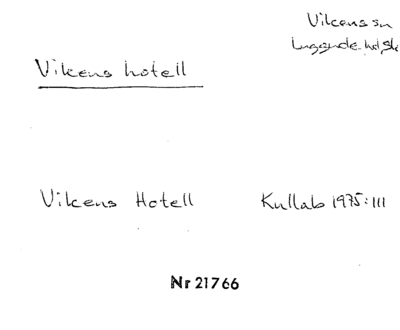 Vikens sn
Vikens hotell
Vikens Hotell Kullab 1975:111
Nr 21766